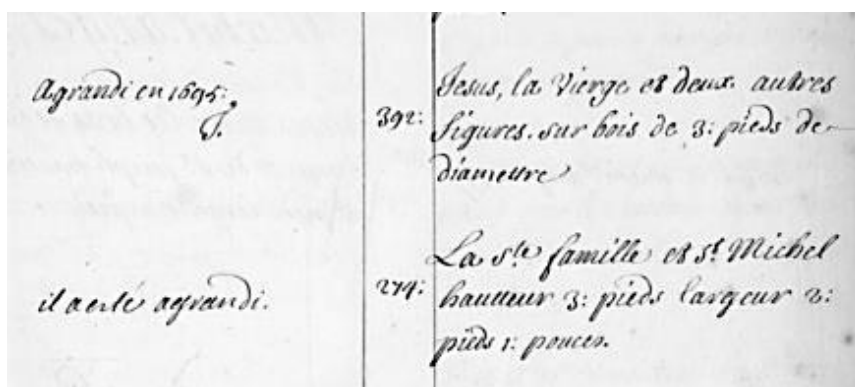 Agrandi en 1695.
J.
392:
Jesus, la Vierge et deux autres
figures. sur bois de 3: pieds de
diamettre
il a esté agrandi.
274:
La Ste famille et St Michel
hautteur 3: pieds largeur 2:
pieds 1: pouces.